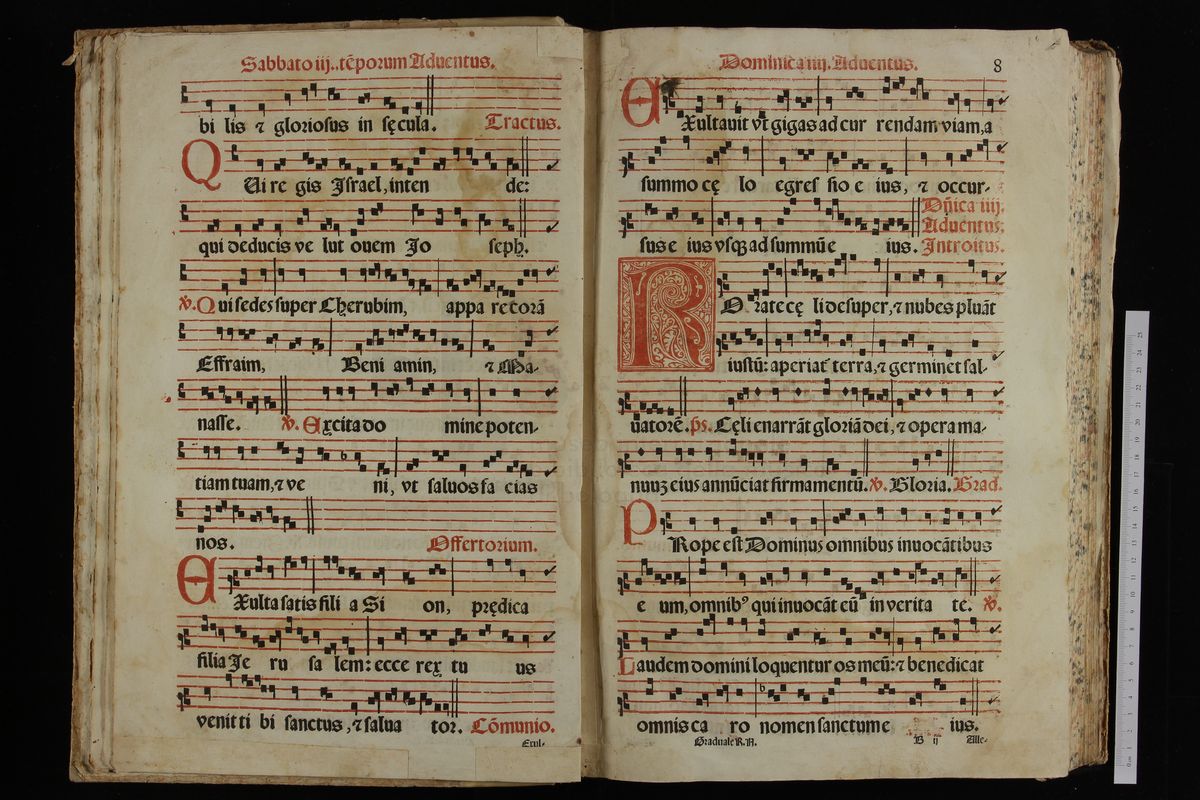 Sabbato iij. tẽporum Aduentus.
bi lis ⁊ gloriosus in sęcula. Tractus.
QUi re gis Israel, inten de:
qui deducis ve lut ouem Jo seph.
℣. Qui sedes super Cherubim, appa re corã
Effraim, Beni amin, ⁊ Ma-
nasse. ℣. Excita do mine poten-
tiam tuam, ⁊ ve ni, vt saluos fa cias
nos. Offertorium.
EXulta satis fili a Si on, prędica
filia Je ru sa lem: ecce rex tu us
venit ti bi sanctus, ⁊ salua tor. Cõmunio.
Exul-
Dominica iiij. Aduentus. 8
EXultauit vt gigas ad cur rendam viam, a
summo cę lo egres sio e ius, ⁊ occur-
Dñica iiij.
Aduentus.
sus e ius vsqꝫ ad summũ e ius. Introitus.
ROrate cę li desuper, ⁊ nubes pluãt
iustũ: aperiat terra, ⁊ germinet sal-
uatorẽ. ps. Cęli enarrãt gloriã dei, ⁊ opera ma-
nuuꝫ eius annũciat firmamentũ. ℣. Gloria. Grad.
PRope est Dominus omnibus inuocãtibus
e um, omnibꝰ qui inuocãt eũ in verita te. ℣.
Laudem domini loquentur os meũ: ⁊ benedicat
omnis ca ro nomen sanctum e ius.
Graduale R.A. B ij Alle-